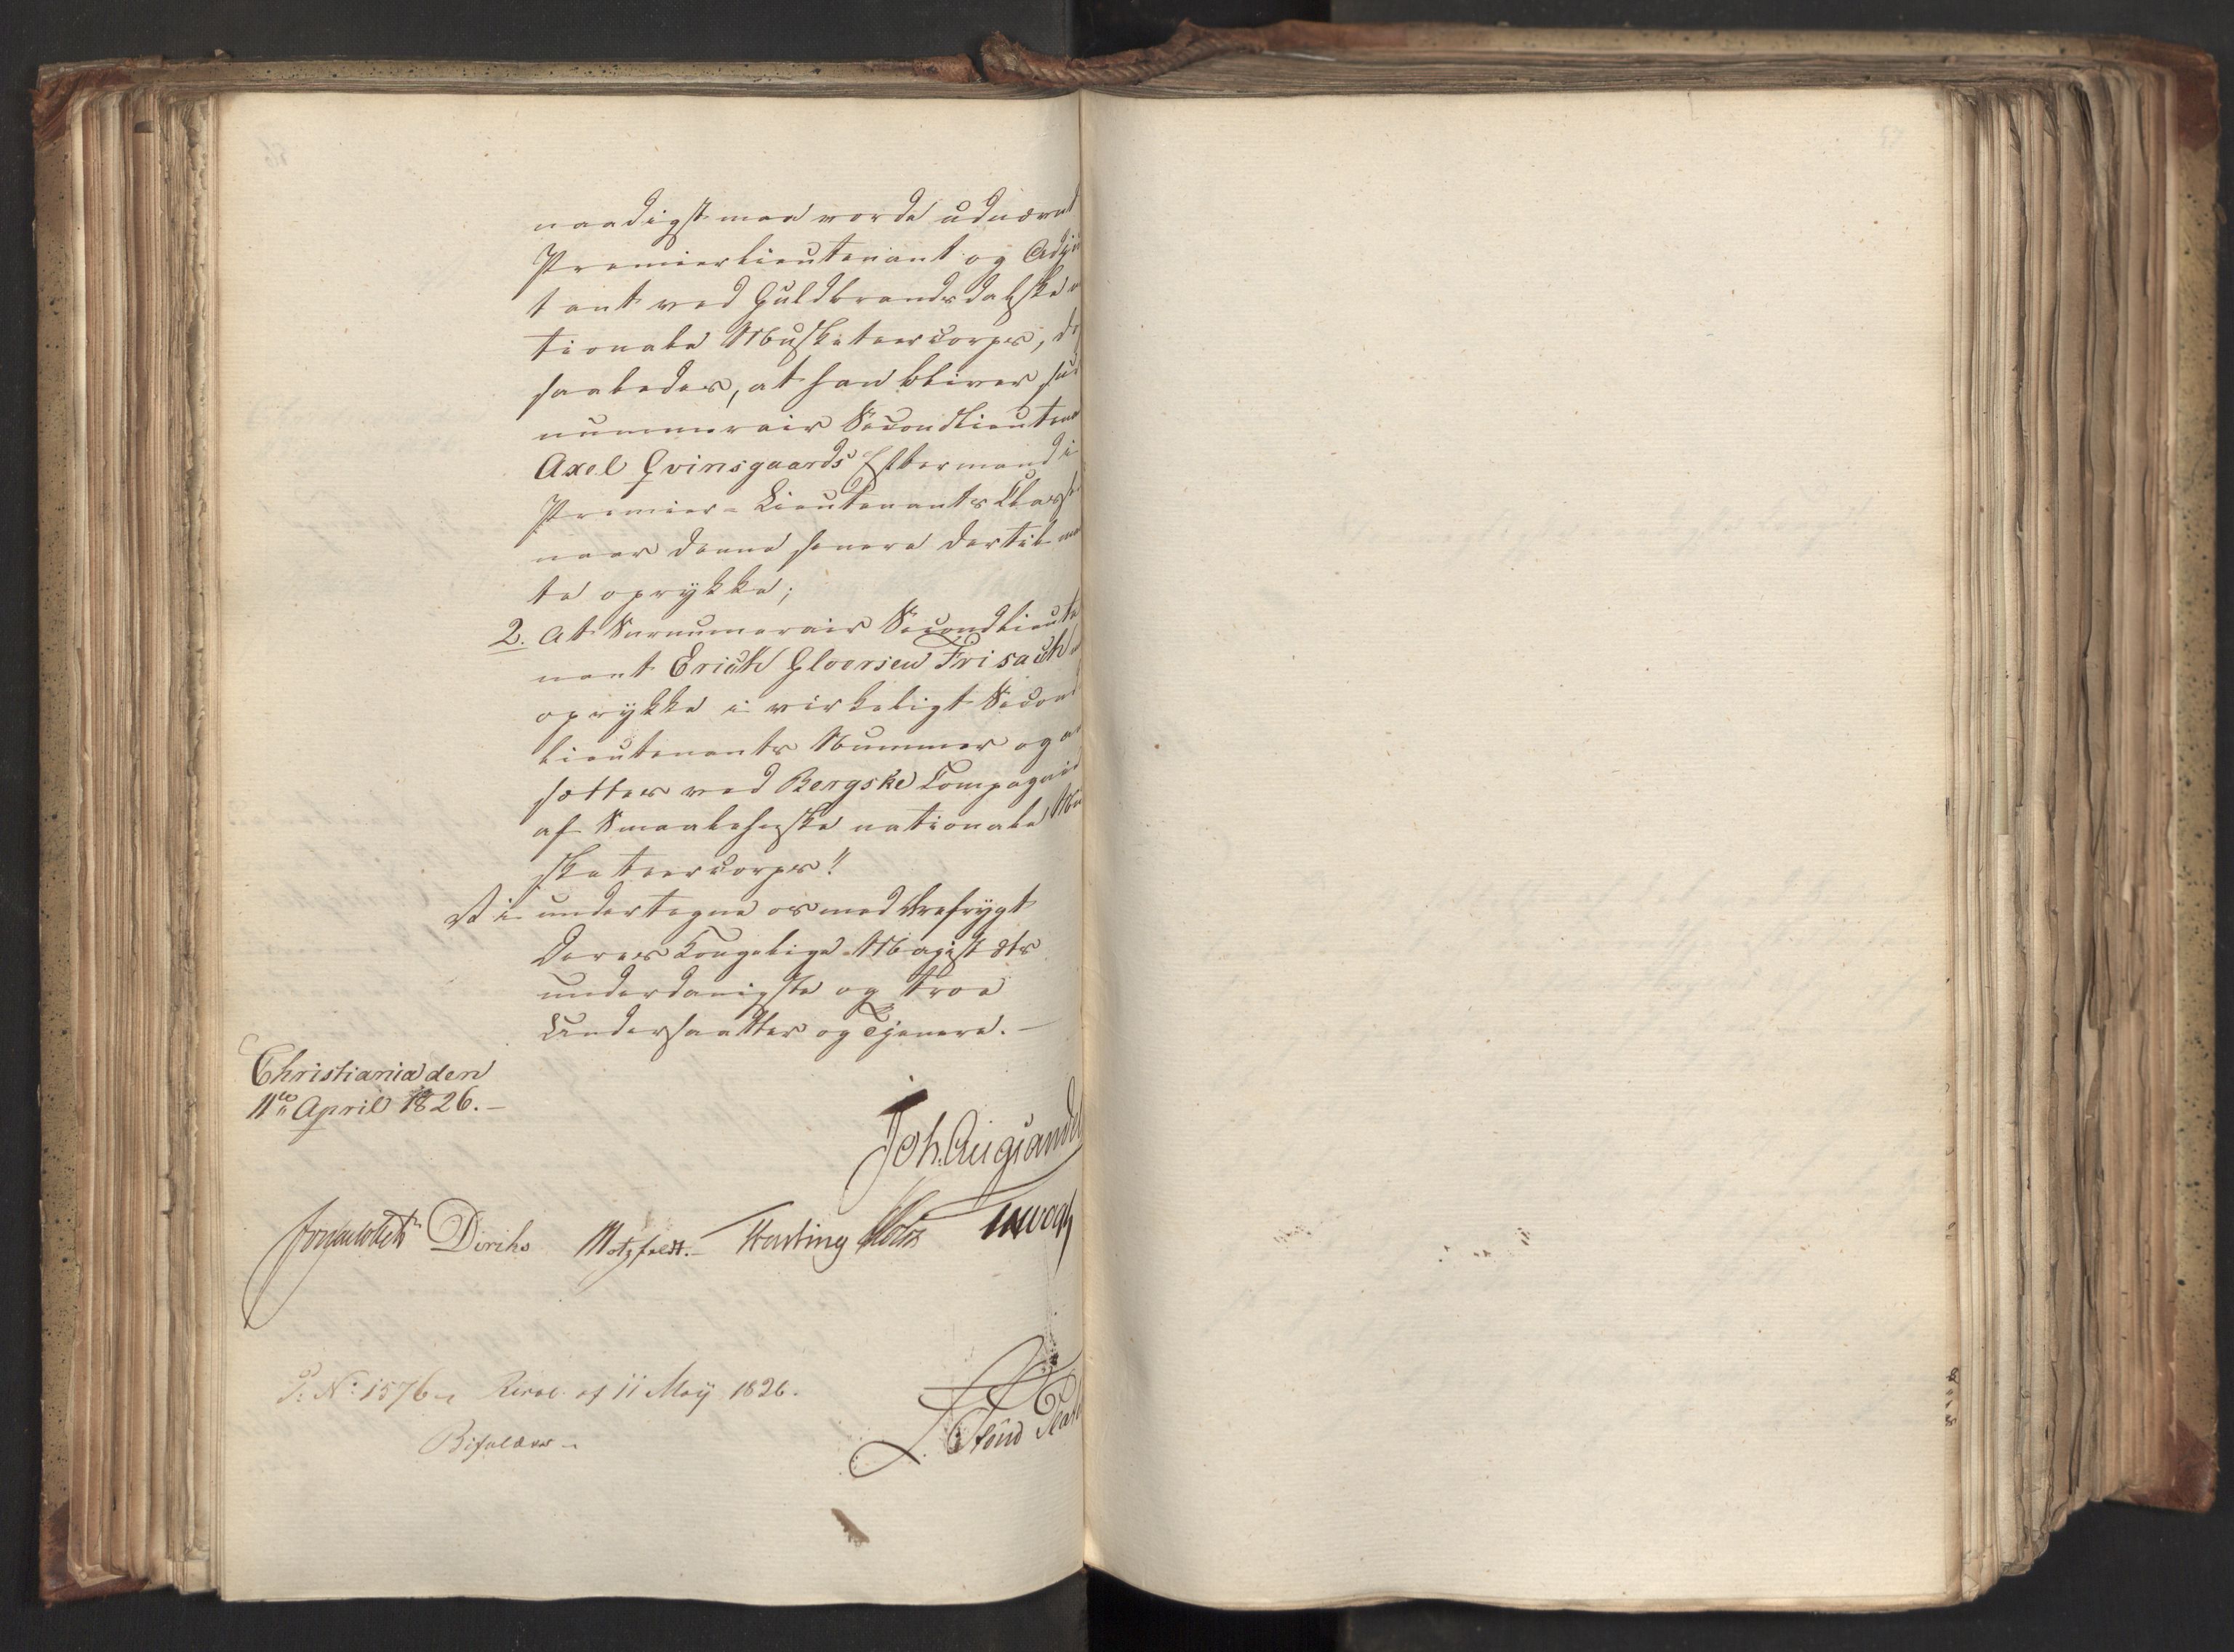 naadigst maa vorde udnævnt
Premierlieutenant og Adju
tant ved Guldbrandsdalske
tionale Musketeercorps, do
saaledes, at han bliver su
nummerair Secondlieutena
Axel Qvinsgaards Eftermand i
Premier-Lieutenants Classe
naar denne senere dertil maa
te oprykke;
2. At Surnumerair Secondlieute
nant Erich Gloersen Frisach
oprykke i virkeligt Second
lieutenants Nummer og an
sættes ved Bergske Compagnie
af Smaalehnske nationale Mu
sketeercorps!!
Vi undertegne os med Ærefrygt
Deres Kongelige Majestæts
underdanigste og troe
Undersaatter og Tjenere.-
Christiania den
11te April 1826.-
Joh. Aug Sandel
Diriks Motzfeldt.- Krog
P: No: 1576 Resol. af 11 May 1826.
Bifaldes-